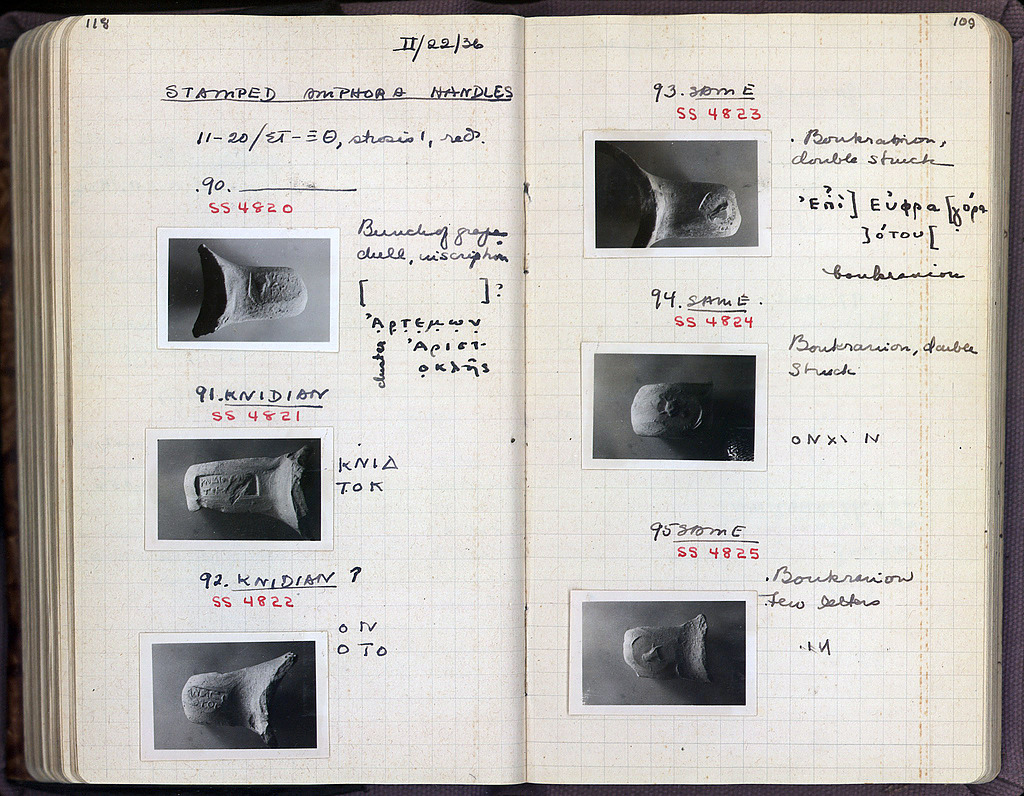 118
II/22/36
STAMPED AMPHORA HANDLES
11-20/ΣΤ-ΞΘ, strosis 1, red.
90.
SS 4820
Bunch of grapes
dull, inscription
[ ]?
Ἀρτεμων
cluster
Ἀριστ-
οκλῆς
91. KNIDIAN
SS 4821
ΚΝΙΔ
ΤΟΚ
92. KNIDIAN ?
SS 4822
ΟΝ
ΟΤΟ
109
93. SAME
SS 4823
Boukranion,
double struck
Ἐπὶ?] Εὐφρα[γόρα
]ότου[
boukranion
94. SAME.
SS 4824
Boukranion, double
struck
ΟΝΧ\ Ν
95 SAME
SS 4825
Boukranion
Few letters
.ΙΝ